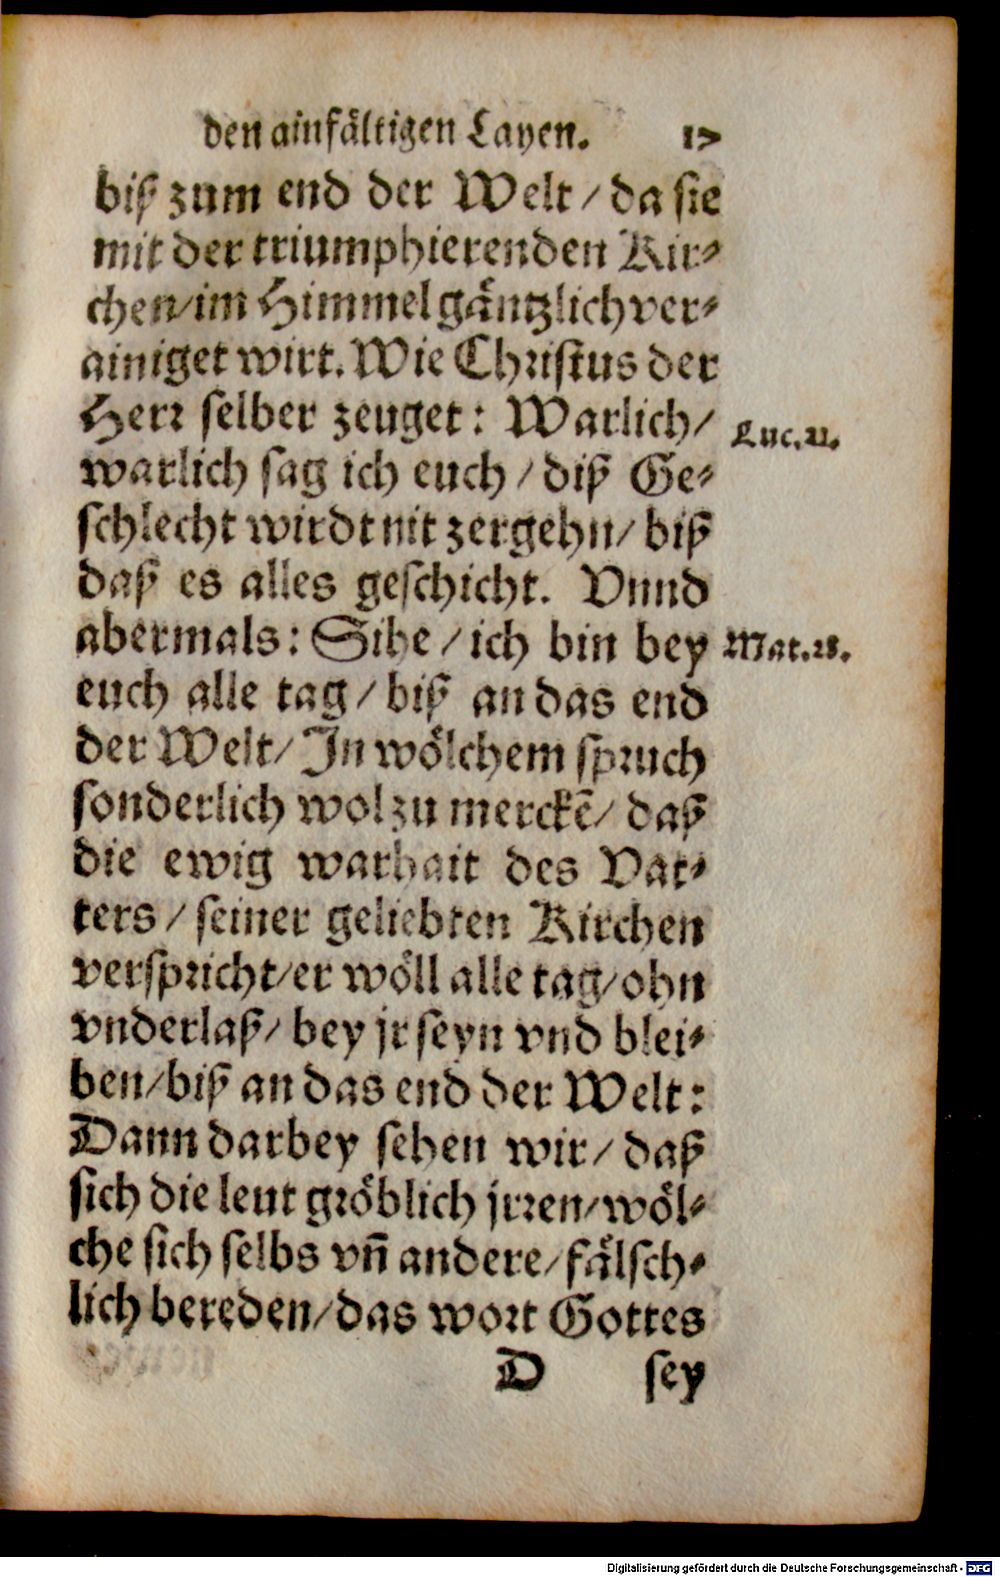 den ainfältigen Layen. 17
biß zum end der Welt / da sie
mit der triumphierenden Kir⸗
chen/im Himmel gäntzlich ver⸗
ainiget wirt. Wie Christus der
Herr selber zeuget: Warlich/
Luc. 21.
warlich sag ich euch / diß Ge⸗
schlecht wirdt nit zergehn/ biß
daß es alles geschicht. Vnnd
abermals: Sihe / ich bin bey
Mat. 28.
euch alle tag / biß an das end
der Welt/ In wölchem spruch
sonderlich wol zu merckē/ daß
die ewig warhait des Vat⸗
ters / seiner geliebten Kirchen
verspricht/er wöll alle tag/ohn
vnderlaß/ bey jr seyn vnd blei⸗
ben/biß an das end der Welt:
Dann darbey sehen wir/ daß
sich die leut gröblich jrren/wöl⸗
che sich selbs vn̄ andere/fälsch⸗
lich bereden/das wort Gottes
D sey
Digitalisierung gefördert durch die Deutsche Forschungsgemeinschaft - DFG